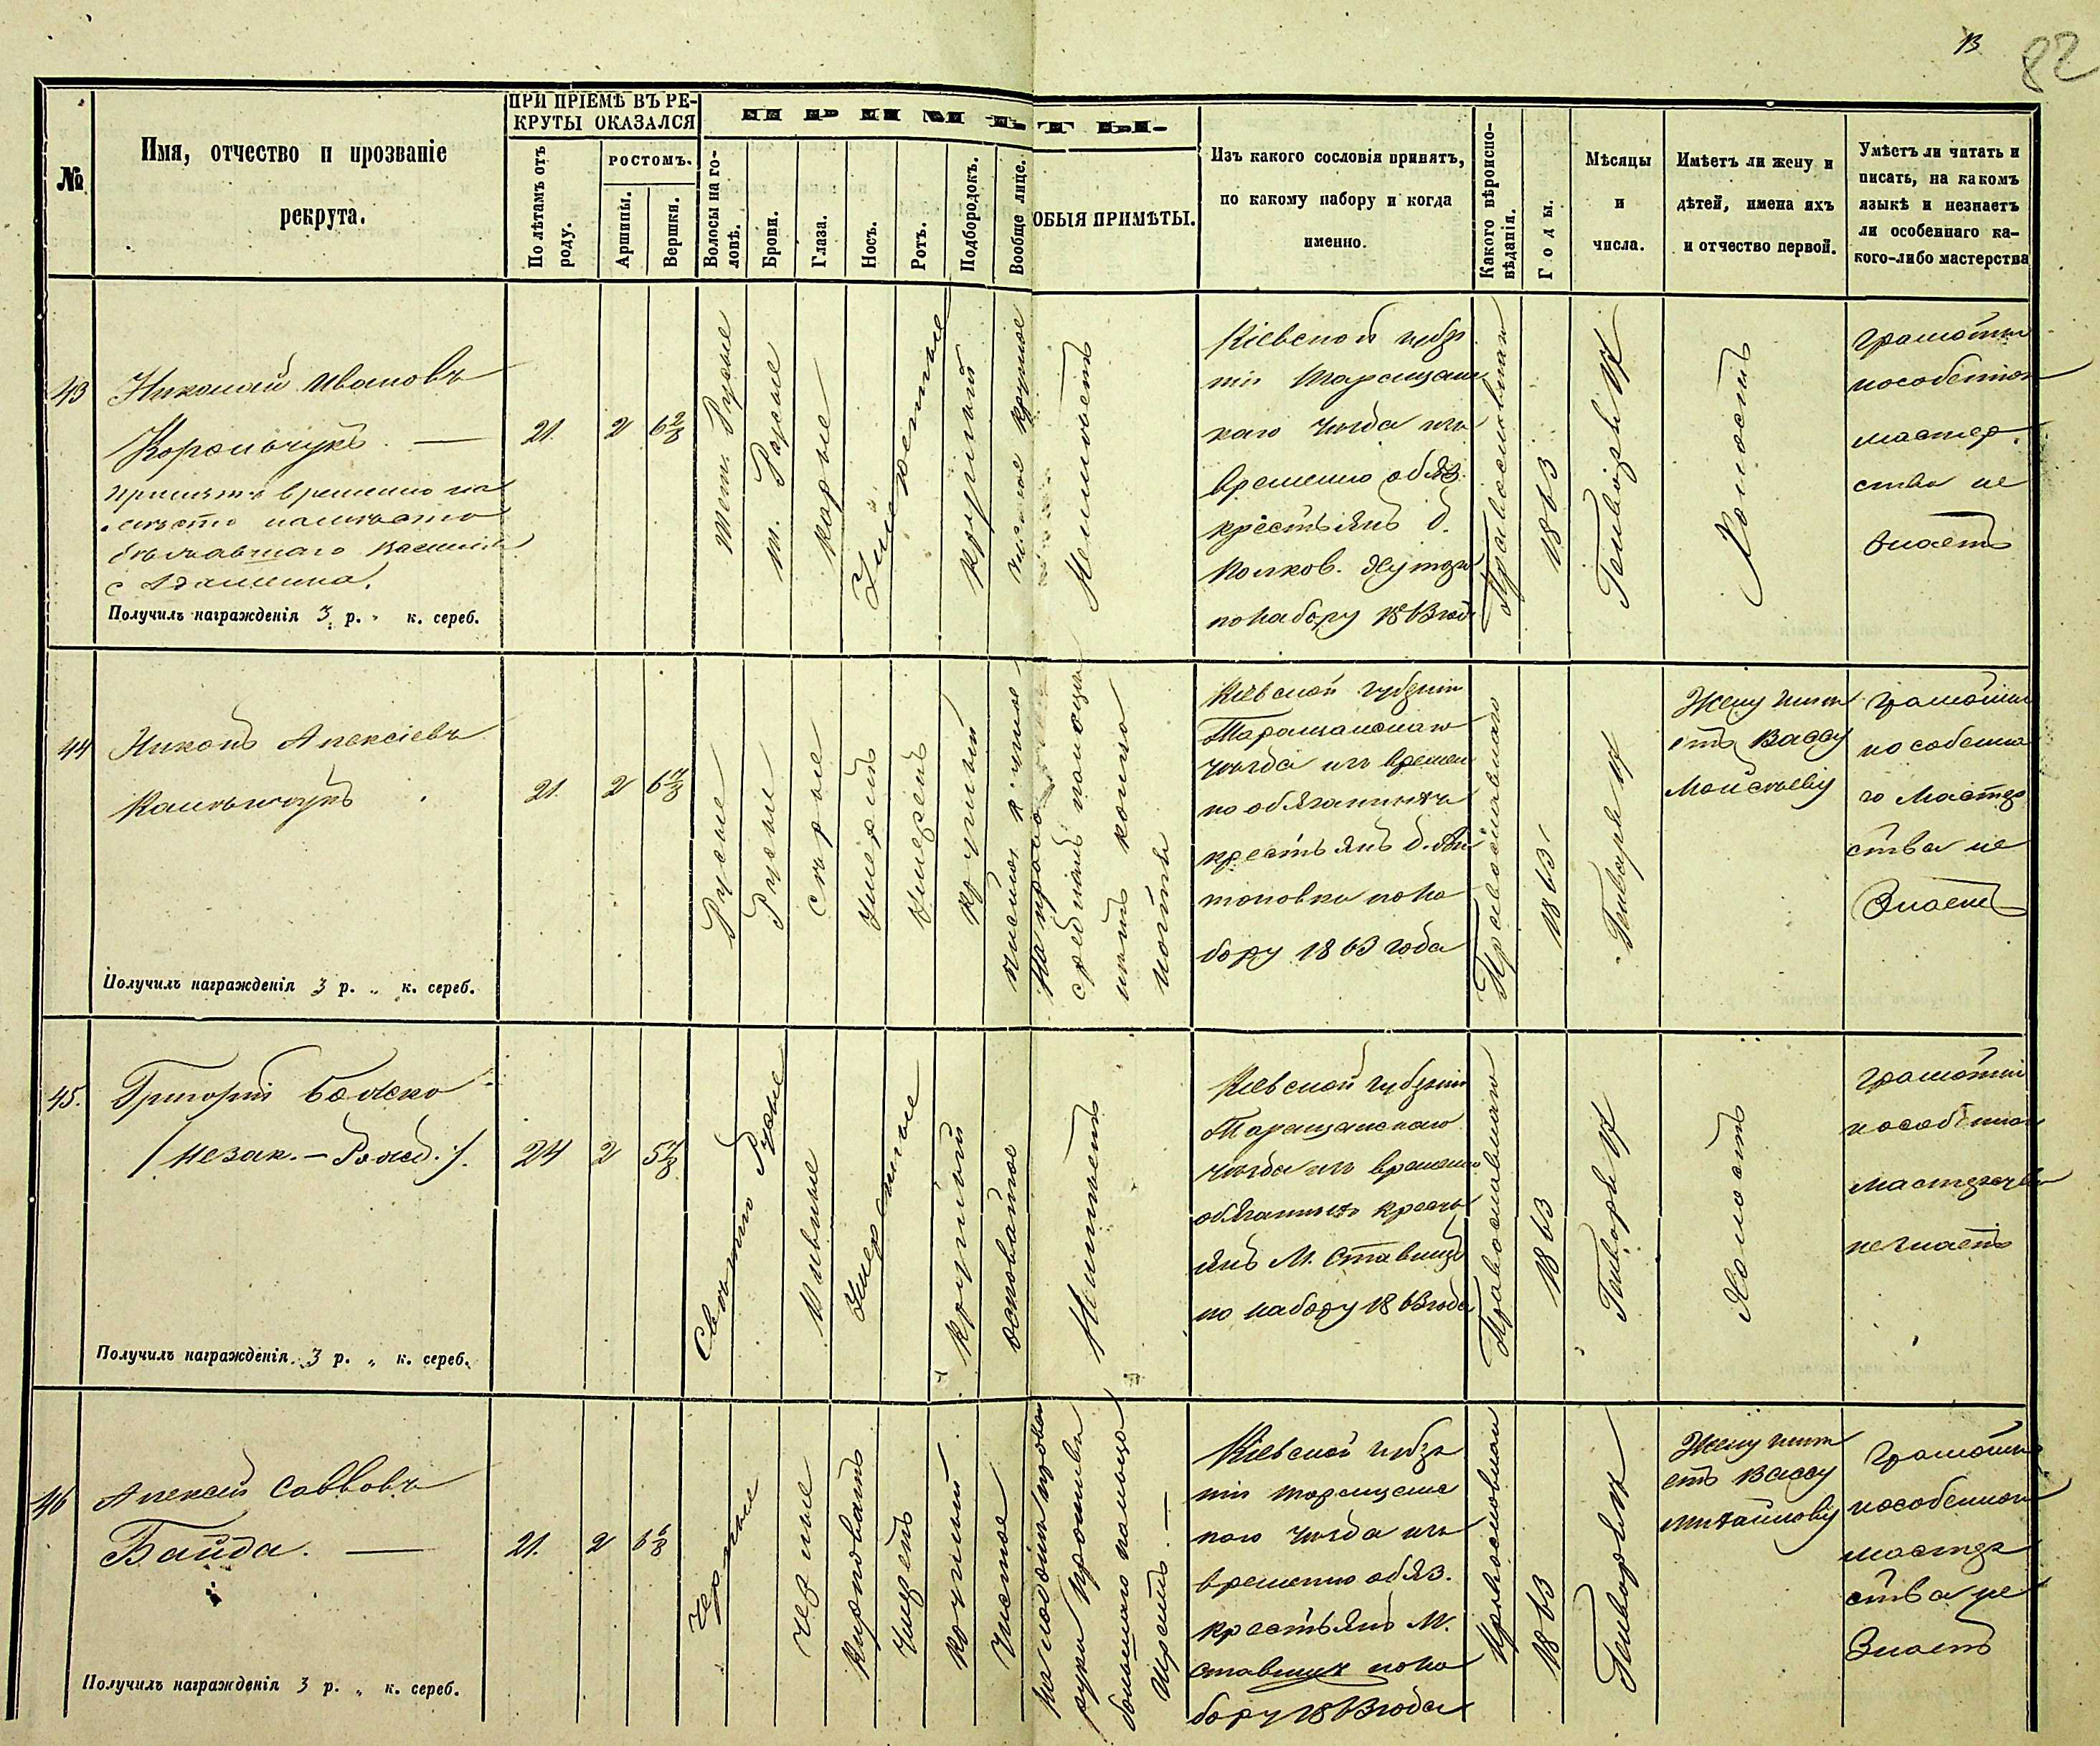 13
82
№
Имя, отчество и прозваніе
рекрута.
ПРИ ПРІЕМѢ ВЪ РЕ-
КРУТЫ ОКАЗАЛСЯ
По лѣтамъ отъ
роду.
РОСТОМЪ.
Аршины.
Вершки.
ПРИМѢТЫ.
Волосы на го-
ловѣ.
Брови.
Глаза.
Носъ.
Ротъ.
Подбородокъ.
Вообще лице.
ОБЫЯ ПРИМѢТЫ.
Изъ какого сословія принятъ,
по какому набору и когда
именно.
Какого вѣроиспо-
вѣданія.
Годы.
Мѣсяцы
и
числа.
Имѣетъ ли жену и
дѣтей, имена ихъ
и отчество первой.
Умѣетъ ли читать и
писать, на какомъ
языкѣ и незнаетъ
ли особеннаго ка-
кого-либо мастерства
43
Николай Ивановъ
Корольчукъ
принятъ временно на
мѣсто
бѣжавшаго
Получилъ награжденія 3 р. " к. сереб.
21.
2
6 2/8
тем. Русые
т. Русые
карые
Умѣренные
круглый
чистое круглое
Неимѣетъ
Кіевской губер
ніи Таращанс
каго уѣзда изъ
временно обяз.
крестьянъ д.
Полков. Хутора
по набору 1863 год
Православнаго
1863
Генваря 17
Холостъ
грамотѣ
и особеннаго
мастер
ства не
знаетъ
44
Никонъ Алексіевъ
Получилъ награжденія 3 р. " к. сереб.
21.
2
6 4/8
Русые
Русые
Сѣрые
Умерен
Умеренъ
круглый
Чистое круглое
На правой
среднемъ пальце
нетъ конца
ногтя
Кіевской губерніи
Таращанскаго
уѣзда изъ времен
но обязанныхъ
крестьянъ д. Ан
тоновки по на
бору 1863 года
Православнаго
1863
Генваря 17
Жену имѣ
етъ Вассу
Моисѣеву
грамотѣ
и особенна
го мастер
ства не
знаетъ
45.
Григорій Божко
/ незак. – Рожд. /.
Получилъ награжденія 3 р. " к. сереб.
24
2
5 4/8
Светло Русые
Умеренные
круглый
Неимѣетъ
Кіевской губерніи
Таращанскаго
уѣзда изъ временно
обязанныхъ кресть
янъ М. Ставищъ
по набору 1863 года
Православнаго
1863
Генваря 17
Холостъ
грамотѣ
и особеннаго
мастерства
не знаетъ
46
Алексѣй Саввовъ
Байда.
Получилъ награжденія 3 р. " к. сереб.
21.
2
Черные
черные
Курноватъ
Умеренъ
круглый
Чистое
руки противъ
большаго пальца
Шрамъ.
Кіевской губер
ніи Таращанс
каго уѣзда изъ
временно обяз.
крестьянъ М.
Ставищъ по на
бору 1863 года
Православнаго
1863
Генваря 17
Жену имѣ
етъ Вассу
Михайлову
грамотѣ
и особеннаго
мастер
ства не
знаетъ